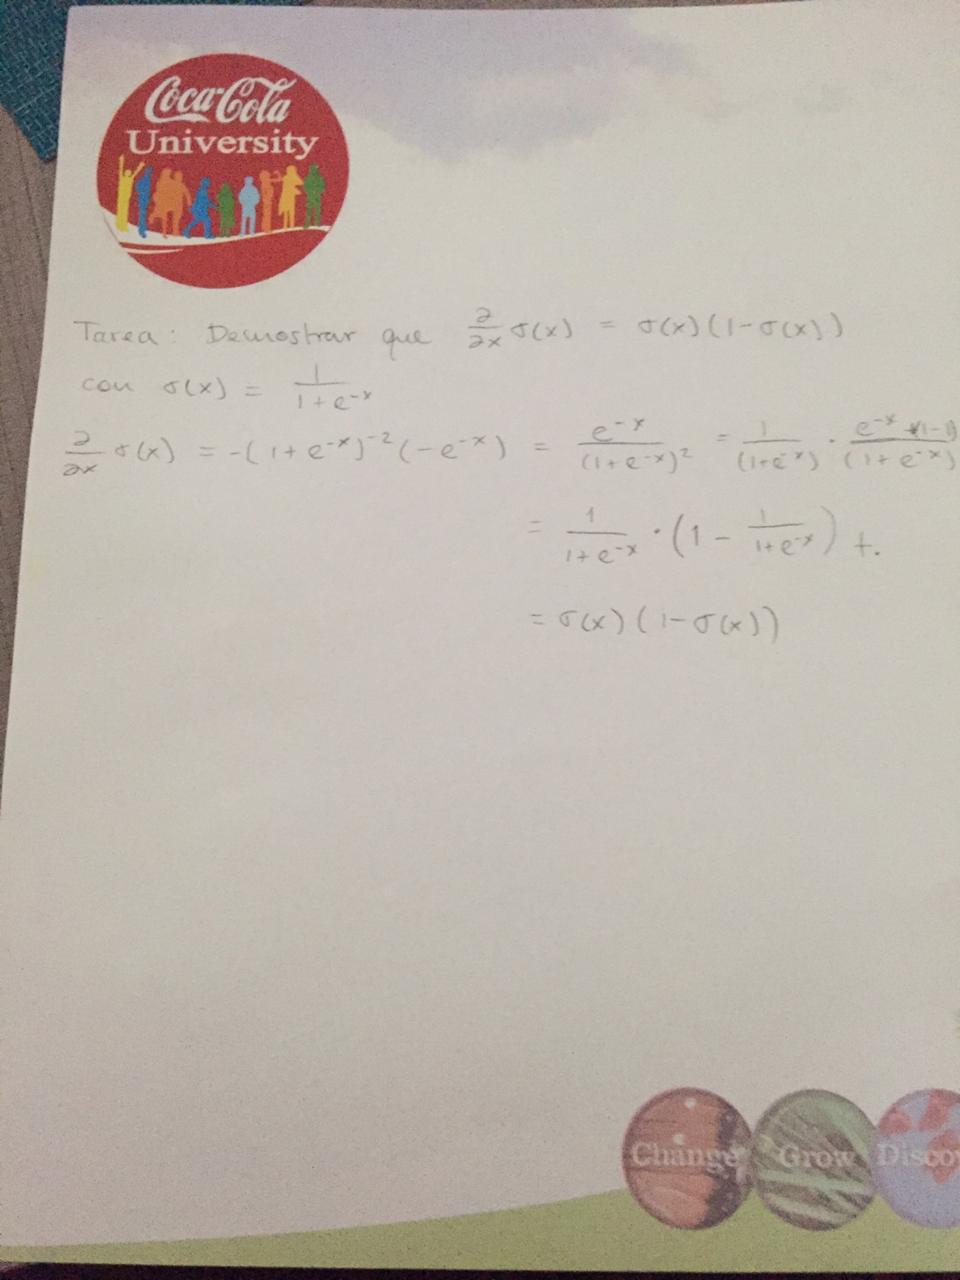 Coca-Cola
University
Tarea: Demostrar que ∂/∂x σ(x) = σ(x)(1-σ(x))
con σ(x) = 1/(1+e^-x)
∂/∂x σ(x) = -(1+e^-x)^-2(-e^-x) = e^-x/(1+e^-x)^2 = 1/(1+e^-x) · e^-x +(1-1)/(1+e^-x)
= 1/(1+e^-x) · (1 - 1/(1+e^-x))
= σ(x)(1-σ(x))
Change Grow Disco